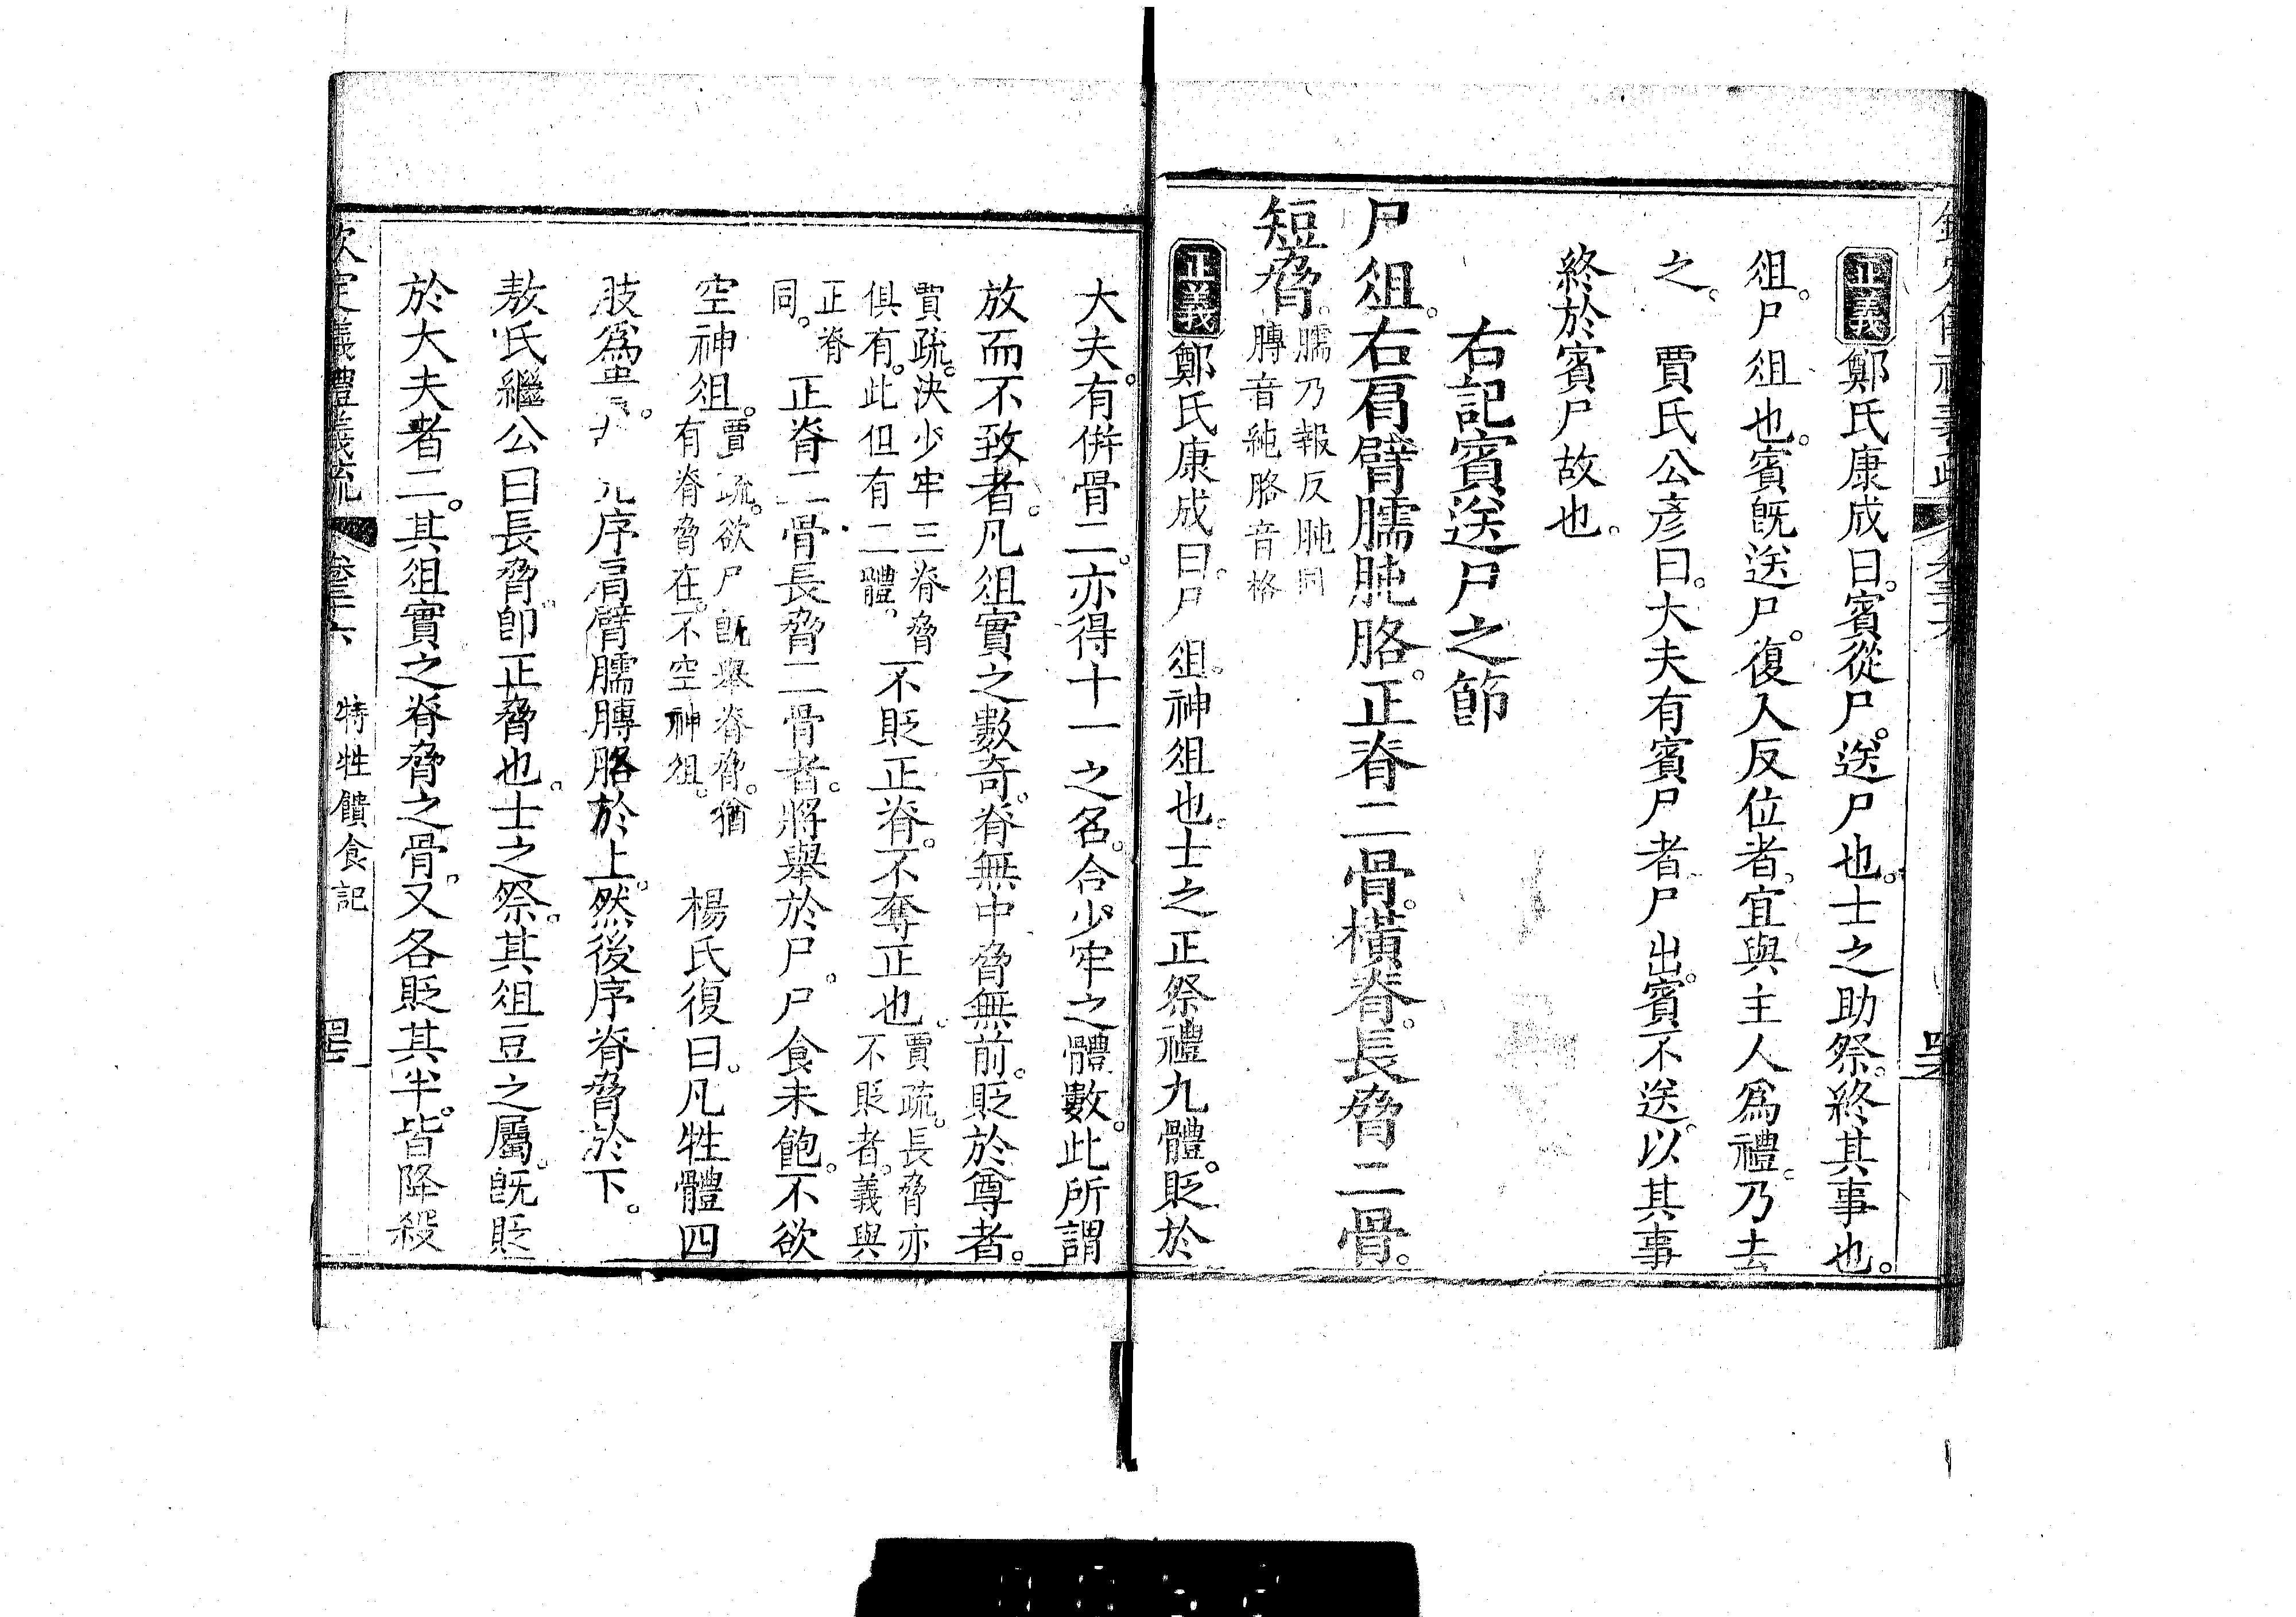 正義鄭氏康成曰。賓從尸。送尸也。士之助祭。終其事也。
俎。尸俎也。賓旣送尸。復入反位者。宜與主人爲禮。乃去
之。　賈氏公彦曰。大夫有賓尸者。尸出。賓不送。以其事
終於賓尸故也。
右記賓送尸之節
尸俎。右肩臂臑肫胳。正脊二骨。橫脊。長脅二骨。
短脅。
臑乃報反肫同
膞音純胳音格
正義鄭氏康成曰。尸俎。神俎也。士之正祭禮九體。貶於
大夫。有倂骨二。亦得十一之名。合少牢之體數。此所謂
放而不致者。凡俎實之數奇。脊無中。脅無前。貶於尊者。
賈疏。決少牢三脊脅
俱有。此但有二體。
不貶正脊。不奪正也。
賈疏。長脅亦
不貶者。義與
正脊
同。
正脊二骨長脅二骨者。將舉於尸。尸食未飽。不欲
空神俎。
賈疏。欲尸旣舉脊脅。猶
有脊脅在。不空神俎。
楊氏復曰。凡牲體四
肢爲
序肩臂臑膞胳於上。然後序脊脅於下。
敖氏繼公曰長脅卽正脅也。士之祭。其俎豆之屬。旣貶
於大夫者二。其俎實之脊脅之骨。又各貶其半。皆降殺
欽定儀禮義疏
卷三十六
特牲饋食記